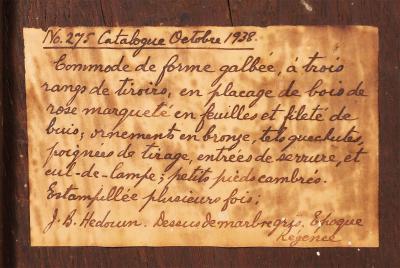 No. 275 Catalogue Octobre 1938.
Commode de forme galbée, à trois
rangs de tiroirs, en placage de bois de
rose marqueté en feuilles et fileté de
buis; ornement en bronze, tels que chutes,
poignées de tirage, entrées de serrure, et
cul-de-lampe; petits pieds cambrés.
Estampillée plusieurs fois:
J. B. Hedouin. Dessus de marbre gris. Epoque
Régence